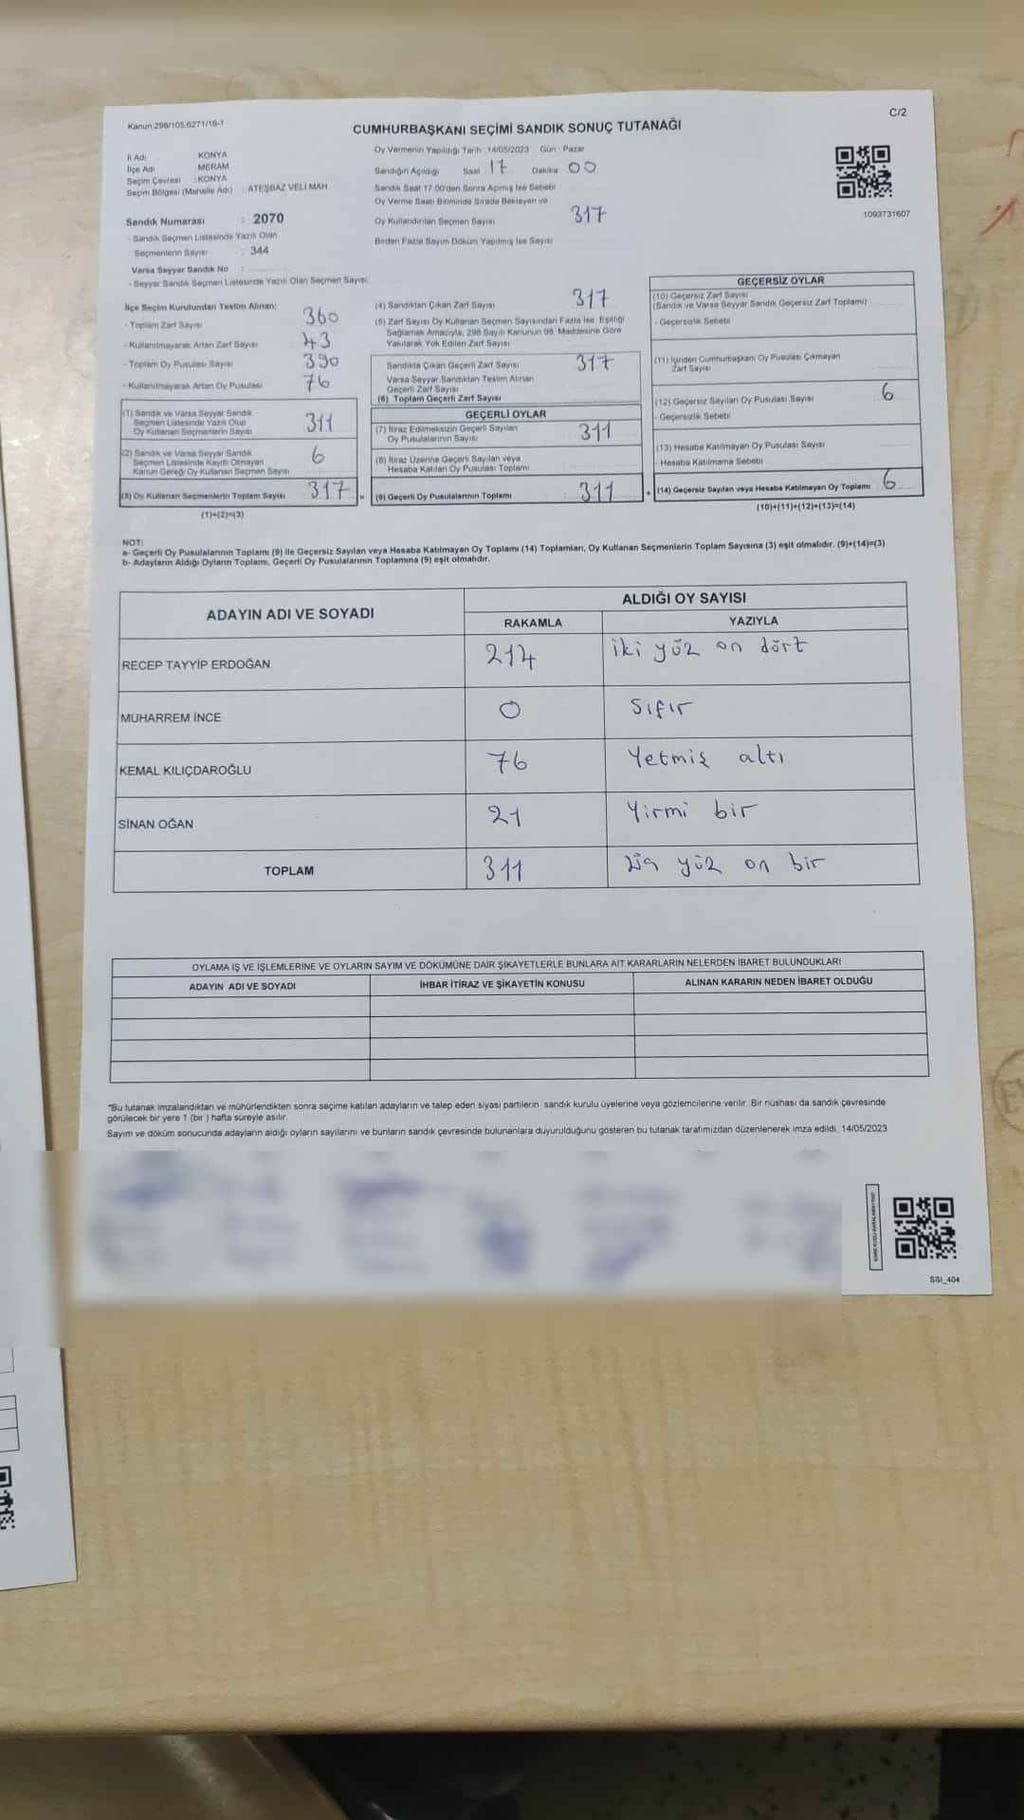 Kanun:298/105,6271/18-1
C/2
CUMHURBAŞKANI SEÇİMİ SANDIK SONUÇ TUTANAĞI
İl Adı : KONYA
İlçe Adı : MERAM
Seçim Çevresi : KONYA
Seçim Bölgesi (Mahalle Adı) : ATEŞBAZ VELİ MAH.
Sandık Numarası : 2070
- Sandık Seçmen Listesinde Yazılı Olan
Seçmenlerin Sayısı : 344
Varsa Seyyar Sandık No :
- Seyyar Sandık Seçmen Listesinde Yazılı Olan Seçmen Sayısı:
Oy Vermenin Yapıldığı Tarih : 14/05/2023 Gün : Pazar
Sandığın Açıldığı Saat 17 Dakika 00
Sandık Saat 17:00'den Sonra Açılmış İse Sebebi
Oy Verme Saati Bitiminde Sırada Bekleyen ve
Oy Kullandırılan Seçmen Sayısı 317
Birden Fazla Sayım Döküm Yapılmış İse Sayısı
1093731607
İlçe Seçim Kurulundan Teslim Alınan:
- Toplam Zarf Sayısı 360
- Kullanılmayarak Artan Zarf Sayısı 43
- Toplam Oy Pusulası Sayısı 390
- Kullanılmayarak Artan Oy Pusulası 76
(1) Sandık ve Varsa Seyyar Sandık
Seçmen Listesinde Yazılı Olup
Oy Kullanan Seçmenlerin Sayısı 311
(2) Sandık ve Varsa Seyyar Sandık
Seçmen Listesinde Kayıtlı Olmayan
Kanun Gereği Oy Kullanan Seçmen Sayısı 6
(3) Oy Kullanan Seçmenlerin Toplam Sayısı 317
(1)+(2)=(3)
(4) Sandıktan Çıkan Zarf Sayısı 317
(5) Zarf Sayısı Oy Kullanan Seçmen Sayısından Fazla İse, Eşitliği
Sağlamak Amacıyla, 298 Sayılı Kanunun 98. Maddesine Göre
Yakılarak Yok Edilen Zarf Sayısı
Sandıkta Çıkan Geçerli Zarf Sayısı 317
Varsa Seyyar Sandıktan Teslim Alınan
Geçerli Zarf Sayısı
(6) Toplam Geçerli Zarf Sayısı
GEÇERLİ OYLAR
(7) İtiraz Edilmeksizin Geçerli Sayılan
Oy Pusulalarının Sayısı 311
(8) İtiraz Üzerine Geçerli Sayılan veya
Hesaba Katılan Oy Pusulası Toplamı
(9) Geçerli Oy Pusulalarının Toplamı 311
GEÇERSİZ OYLAR
(10) Geçersiz Zarf Sayısı
(Sandık ve Varsa Seyyar Sandık Geçersiz Zarf Toplamı)
- Geçersizlik Sebebi
(11) İçinden Cumhurbaşkanı Oy Pusulası Çıkmayan
Zarf Sayısı
(12) Geçersiz Sayılan Oy Pusulası Sayısı 6
- Geçersizlik Sebebi
(13) Hesaba Katılmayan Oy Pusulası Sayısı
- Hesaba Katılmama Sebebi
(14) Geçersiz Sayılan veya Hesaba Katılmayan Oy Toplamı 6
(10)+(11)+(12)+(13)=(14)
NOT:
a- Geçerli Oy Pusulalarının Toplamı (9) ile Geçersiz Sayılan veya Hesaba Katılmayan Oy Toplamı (14) Toplamları, Oy Kullanan Seçmenlerin Toplam Sayısına (3) eşit olmalıdır. (9)+(14)=(3)
b- Adayların Aldığı Oyların Toplamı, Geçerli Oy Pusulalarının Toplamına (9) eşit olmalıdır.
ADAYIN ADI VE SOYADI ALDIĞI OY SAYISI
RAKAMLA YAZIYLA
RECEP TAYYİP ERDOĞAN 214 iki yüz on dört
MUHARREM İNCE 0 Sıfır
KEMAL KILIÇDAROĞLU 76 Yetmiş altı
SİNAN OĞAN 21 Yirmi bir
TOPLAM 311 Üç yüz on bir
OYLAMA İŞ VE İŞLEMLERİNE VE OYLARIN SAYIM VE DÖKÜMÜNE DAİR ŞİKAYETLERLE BUNLARA AİT KARARLARIN NELERDEN İBARET BULUNDUKLARI
ADAYIN ADI VE SOYADI İHBAR İTİRAZ VE ŞİKAYETİN KONUSU ALINAN KARARIN NEDEN İBARET OLDUĞU
*Bu tutanak imzalandıktan ve mühürlendikten sonra seçime katılan adayların ve talep eden siyasi partilerin sandık kurulu üyelerine veya gözlemcilerine verilir. Bir nüshası da sandık çevresinde
görülecek bir yere 1 (bir ) hafta süreyle asılır.
Sayım ve döküm sonucunda adayların aldığı oyların sayılarını ve bunların sandık çevresinde bulunanlara duyurulduğunu gösteren bu tutanak tarafımızdan düzenlenerek imza edildi. 14/05/2023
SSI_404